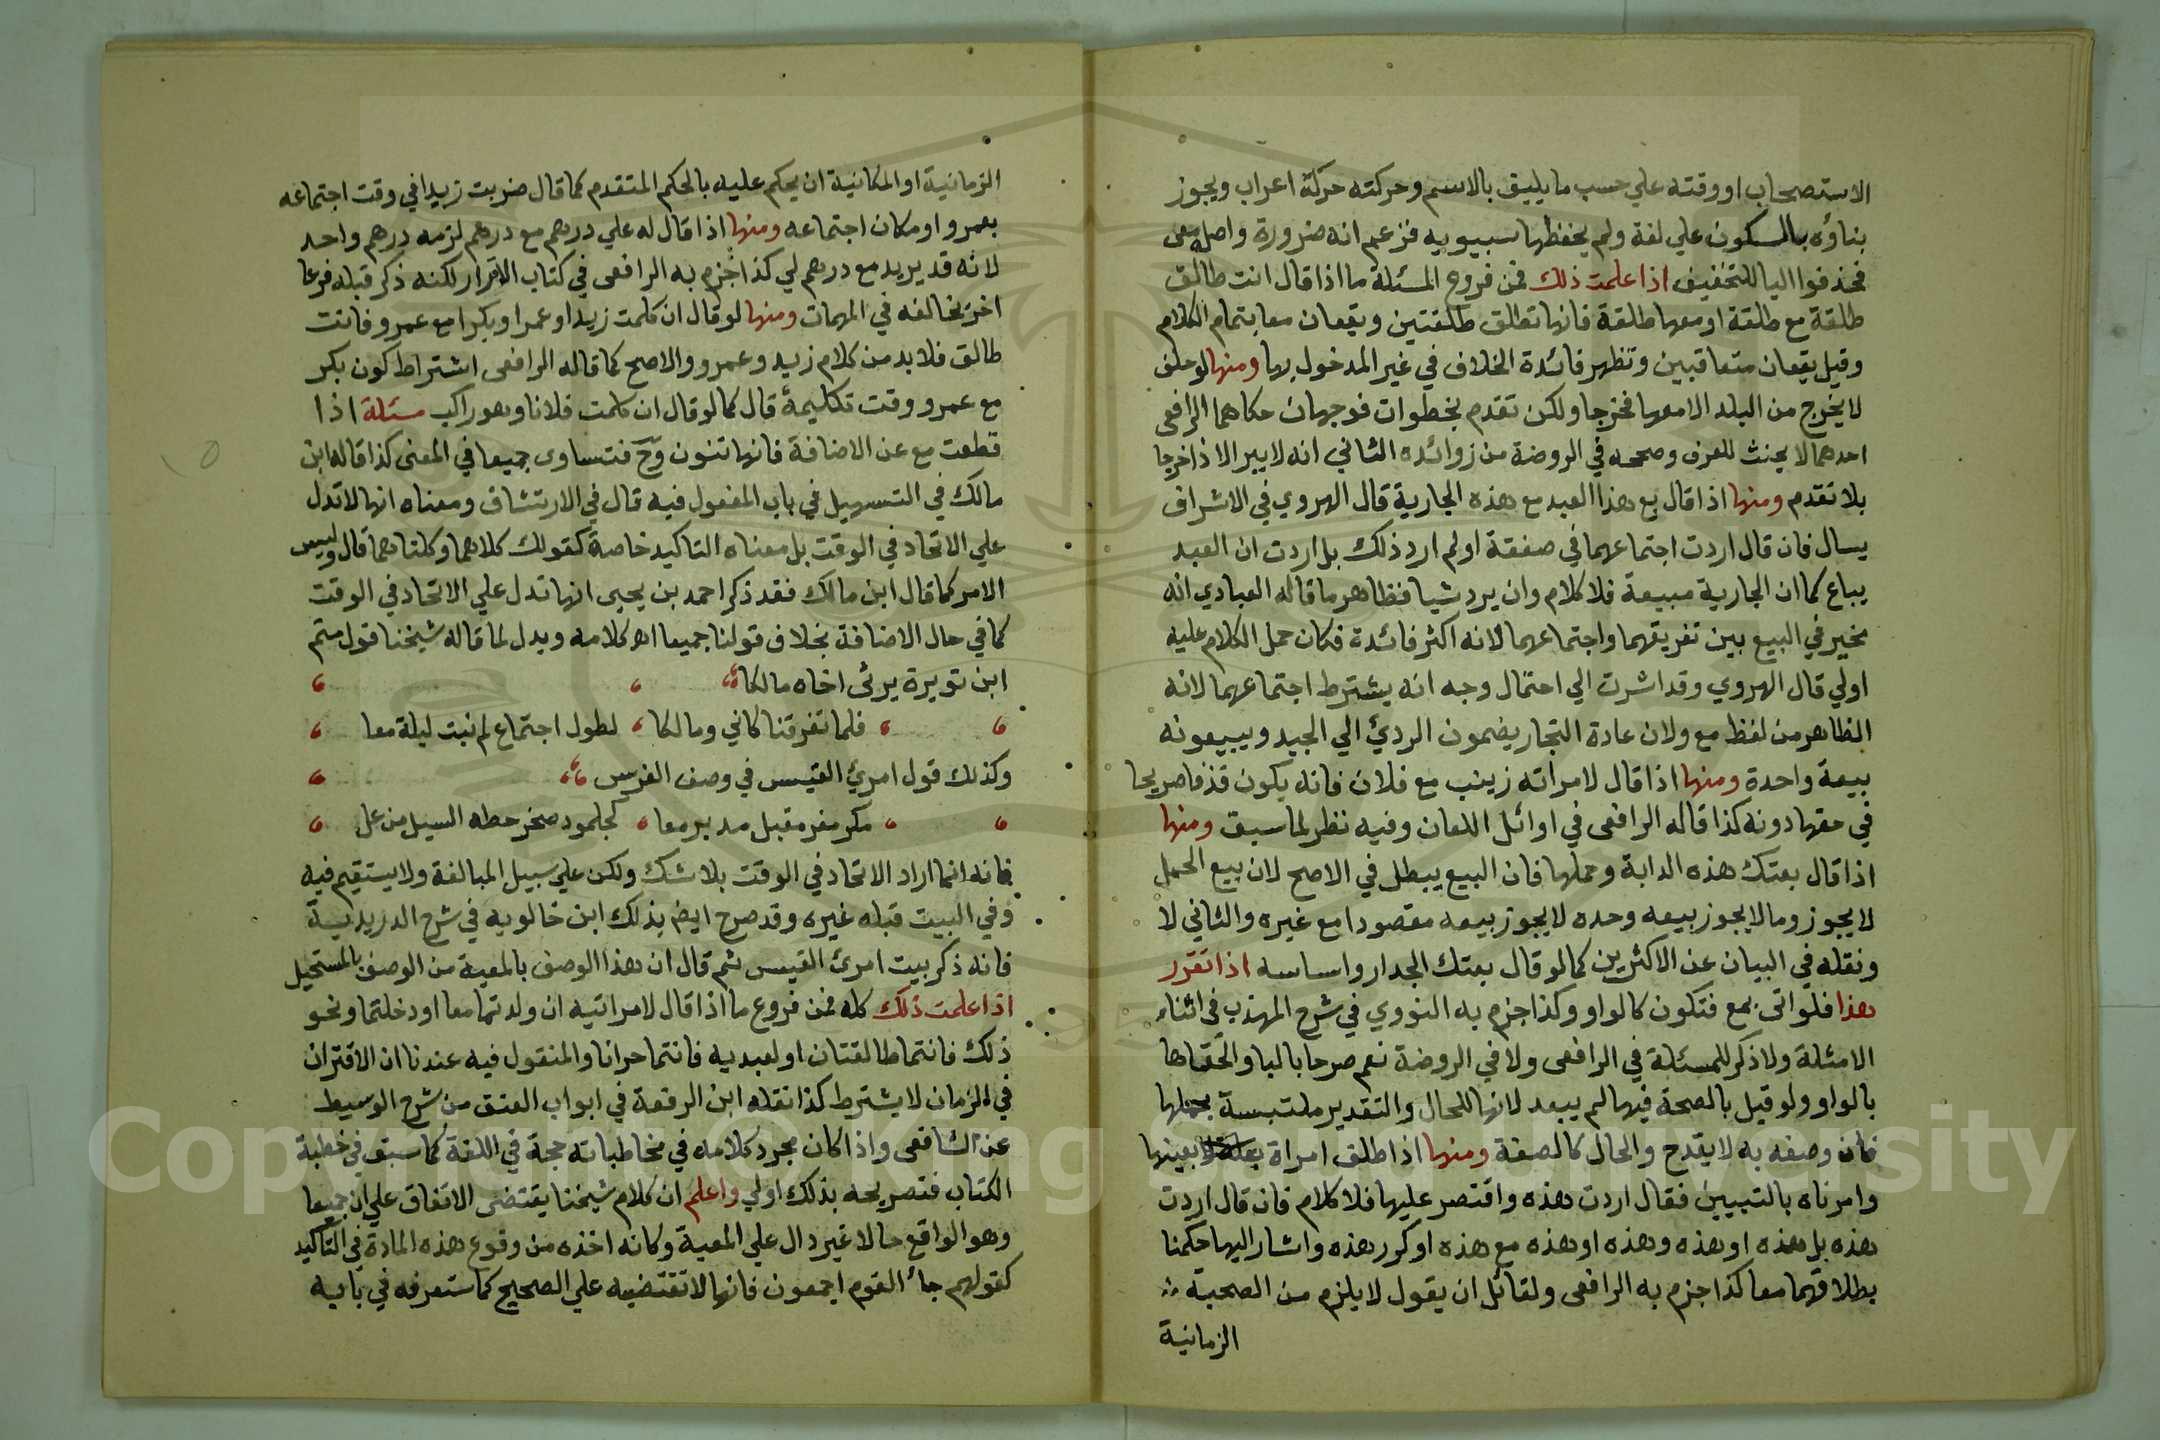 الاستصحاب او وقته علي حسب ما يليق بالاسم وحركته حركة اعراب ويجوز
بناؤه بالسكون علي لغة ولم يحفظها سيبويه فزعم انه ضرورة واصله معي
فحذفوا اليا للتخفيف اذا علمت ذلك فمن فروع المسئلة ما اذا قال انت طالق
طلقة مع طلقة او معها طلقة فانها تطلق طلقتين ويقعان معا بتمام الكلام
وقيل يقعان متعاقبين وتظهر فائدة الخلاف في غير المدخول بها ومنها لو حلف
لا يخرج من البلد الا معها فخرجا ولكن تقدم بخطوات فوجهان حكاهما الرافعي
احدهما لا يحنث للعرف وصححه في الروضة من زوائده الثاني انه لا يبر الا اذا خرجا
بلا تقدم ومنها اذا قال بع هذا العبد مع هذه الجارية قال الهروي في الاشراف
يسال فان قال اردت اجتماعهما في صفقة او لم ارد ذلك بل اردت ان العبد
يباع كما ان الجارية مبيعة فلا كلام وان يرد شيا فظاهر ما قاله العبادي انه
مخير في البيع بين تفريقهما واجتماعهما لانه اكثر فائدة فكان حمل الكلام عليه
اولي قال الهروي وقد اشرت الي احتمال وجه انه يشترط اجتماعهما لانه
الظاهر من لفظ مع ولان عادة التجار يضمون الرديئ الي الجيد ويبيعونه
بيعة واحدة ومنها اذا قال لامراته زينب مع فلان فانه يكون قذفا صريحا
في حقها دونه كذا قاله الرافعي في اوائل اللعان وفيه نظر لما سبق ومنها
اذا قال بعتك هذه الدابة وحملها فان البيع يبطل في الاصح لان بيع الحمل
لا يجوز وما لا يجوز بيعه وحده لا يجوز بيعه مقصودا مع غيره والثاني لا
ونقله في البيان عن الاكثرين كما لو قال بعتك الجدار واساسه اذا تقرر
هذا فلو اتى بمع فتكون كالواو وكذا جزم به النووي في شرح المهذب في اثناء
الامثلة ولا ذكر للمسئلة في الرافعي ولا في الروضة نعم صرحا بالبا والحقاها
بالواو ولو قيل بالصحة فيها لم يبعد لانها للحال والتقدير ملتبسة بحملها
فان وصفه به لا يقدح والحال كالصفة ومنها اذا طلق امراة بعينها
وامرناه بالتبيين فقال اردت هذه واقتصر عليها فلا كلام فان قال اردت
هذه بل هذه او هذه وهذه او هذه مع هذه او كرر هذه واشار اليها حكمنا
بطلاقهما معا كذا جزم به الرافعي ولقائل ان يقول لا يلزم من الصحبة
الزمانية
الزمانية او المكانية ان يحكم عليه بالحكم المتقدم كما قال ضربت زيدا في وقت اجتماعه
بعمرو او مكان اجتماعه ومنها اذا قال له علي درهم مع درهم لزمه درهم واحد
لانه قد يريد مع درهم لي كذا جزم به الرافعي في كتاب الاقرار لكنه ذكر قبله فرعا
اخر يخالفه في المهمات ومنها لو قال ان كلمت زيدا وعمرا وبكرا مع عمرو فانت
طالق فلا بد من كلام زيد وعمرو والاصح كما قاله الرافعي اشتراط كون بكر
مع عمرو وقت تكليمه قال كما لو قال ان كلمت فلانا وهو راكب مسئلة اذا
قطعت مع عن الاضافة فانها تنون وح فتساوى جميعا في المعنى كذا قاله ابن
مالك في التسهيل في باب المفعول فيه قال في الارتشاف ومعناه انها لا تدل
علي الاتحاد في الوقت بل معناه التاكيد خاصة كقولك كلاهما وكلتاهما قال وليس
الامر كما قال ابن مالك فقد ذكر احمد بن يحيى انها تدل علي الاتحاد في الوقت
كما في حال الاضافة بخلاف قولنا جميعا اهـ كلامه ويدل لما قاله شيخنا قول متمم
ابن نويرة يرثى اخاه مالكا
فلما تفرقنا كاني ومالكا لطول اجتماع لم نبت ليلة معا
وكذلك قول امرئ القيس في وصف الفرس
مكر مفر مقبل مدبر معا كجلمود صخر حطه السيل من عل
فانه انما اراد الاتحاد في الوقت بلا شك ولكن علي سبيل المبالغة ولا يستقيم فيه
وفي البيت قبله غيره وقد صرح ايض بذلك ابن خالويه في شرح الدريدية
فانه ذكر بيت امرئ القيس ثم قال ان هذا الوصف بالمعية من الوصف بالمستحيل
اذا علمت ذلك كله فمن فروع ما اذا قال لامراتيه ان ولدتما معا او دخلتما ونحو
ذلك فانتما طالقتان او لعبديه فانتما حران والمنقول فيه عندنا ان الاقتران
في الزمان لا يشترط كذا نقله ابن الرفعة في ابواب العتق من شرح الوسيط
عن الشافعي واذا كان مجرد كلامه في مخاطباته حجة في اللغة كما سبق في خطبة
الكتاب فتصريحه بذلك اولي واعلم ان كلام شيخنا يقتضي الاتفاق علي ان جميعا
وهو الواقع حالا غير دال علي المعية وكانه اخذه من وقوع هذه المادة في التاكيد
كقولهم جاء القوم اجمعون فانها لا تقتضيه علي الصحيح كما ستعرفه في بابه
Copyright © King Saud University